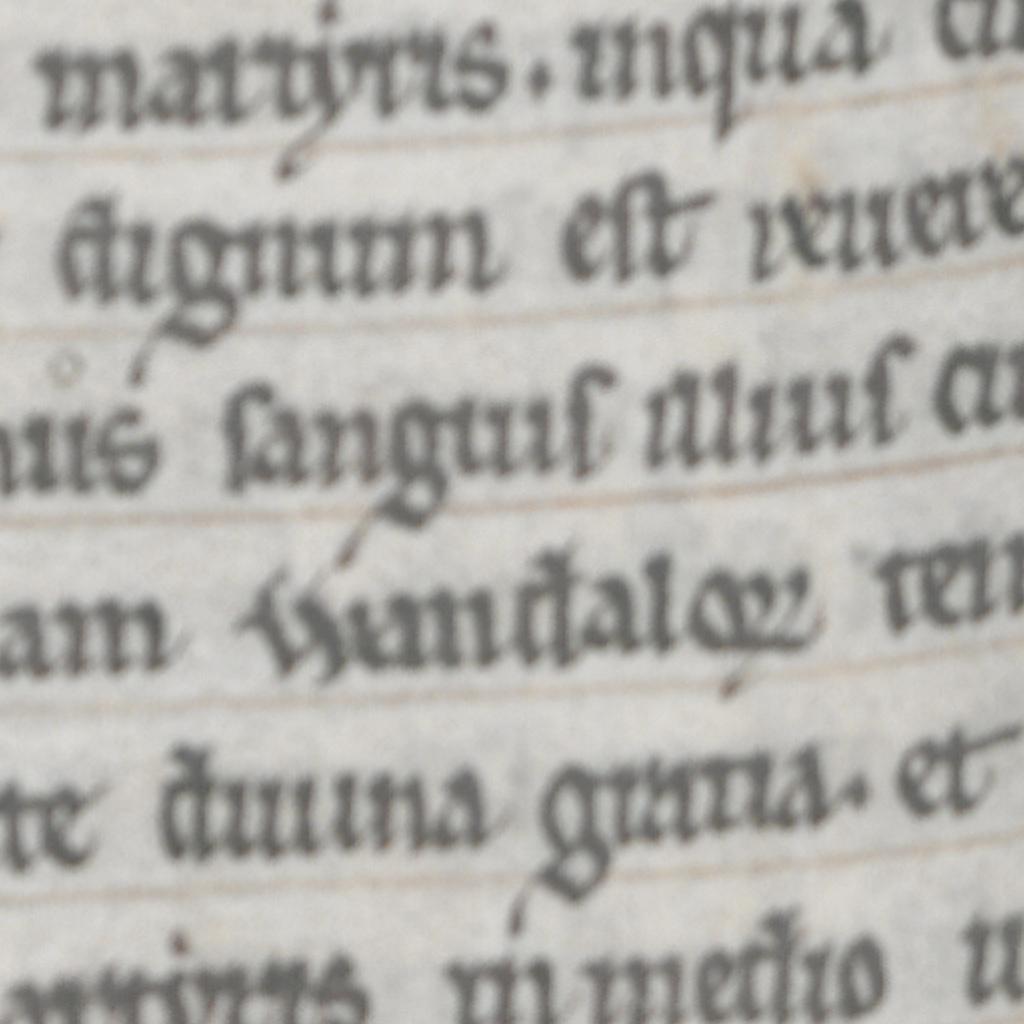 martyris. inqua
dignum eſt reuere
ſanguiſ illiuſ
am Wandaloꝝ tem
te diuina gratia. et
martyris in medio